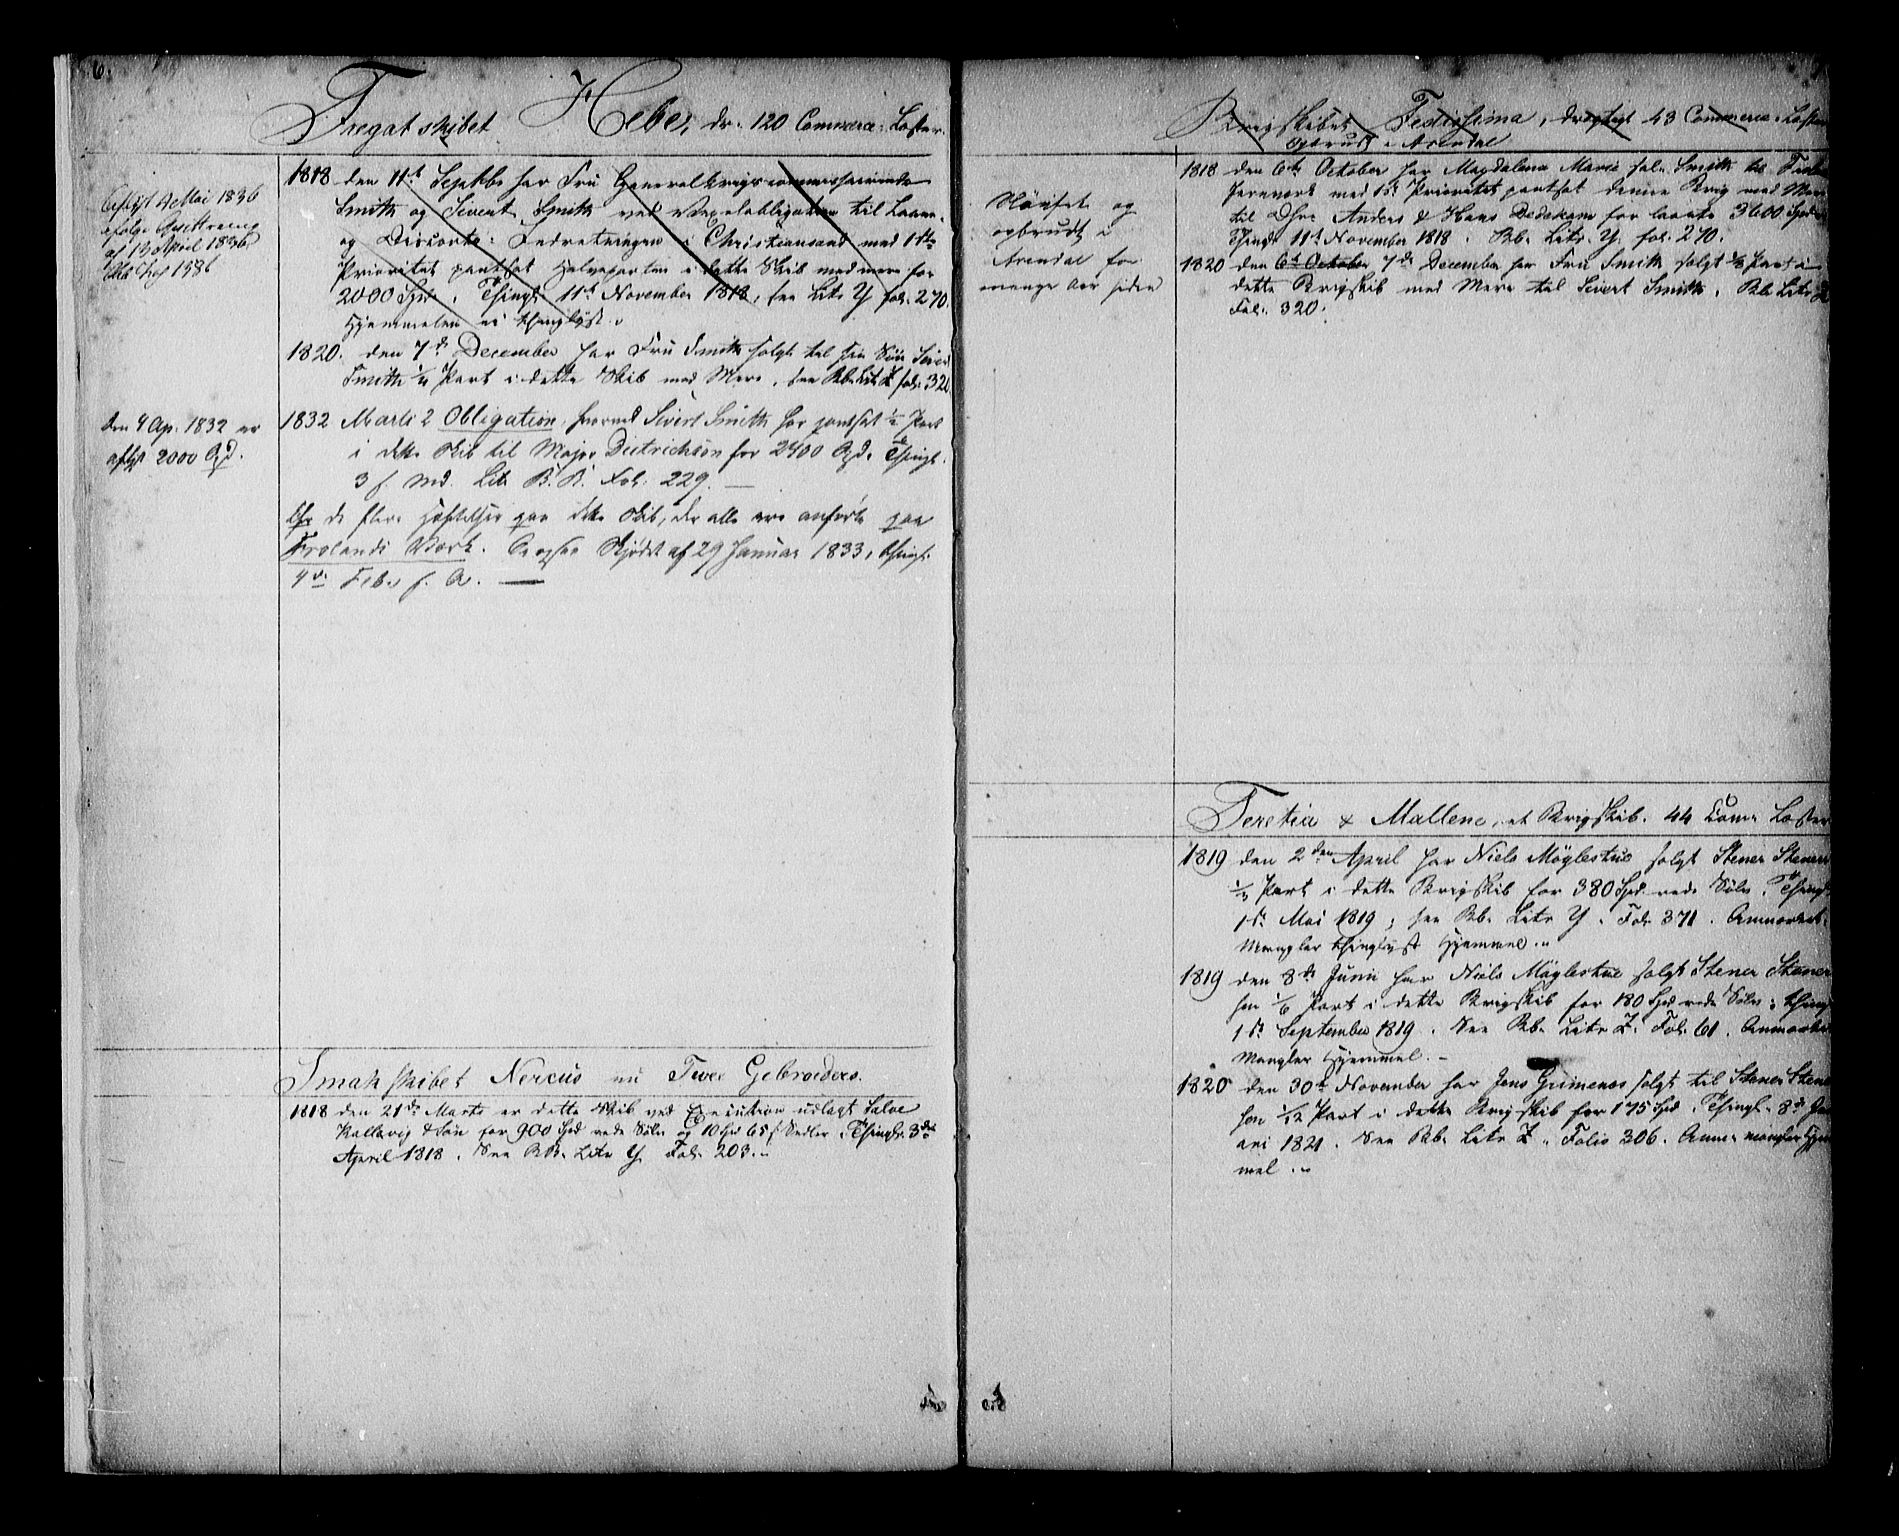 6.
Fregatskibet Hebe, dr. 120 Commerce-Læster.
Aflyst 4 Mai 1836
ifølge Qvittering
af 13 April 1836
1818 den 11te Septbr har Fru Generalkrigscommissairinde
Smith og Sivert Smith ved Vexelobligation til Laane-
og Disconto-Indretningen i Christiansand med 1ste
Prioritet pantsat Halveparten i dette Skib med mere for
2000 Spd. Thingl. 11te November 1818, see Litr Y fol. 270.
Hjemmelen ei thinglyst.
1820. den 7de December har Fru Smith solgt til sin Søn Sivert
Smith 1/4 Part i dette Skib med Mere, see Rb. Litr Z fol. 320
den 4 Ap. 1832 er
aflyst 2000 Spd.
1832 Marts 2 Obligation, hvorved Sivert Smith har pantsat 1/2 Part
i dette Skib til Major Dietrichson for 2400 Spd. Thingl.
3 f. Md. Litr B.B. Fol. 229.
de flere Hæftelser paa dette Skib, der alle ere anførte paa
Frolands Værk. Skjødet af 29 Januar 1833, thingl.
4de Feb. f. A.
Smakskibet Nereus nu Twee Gebroeders.
1818 den 21de Marts er dette Skib ved Execution udlagt Salve
Kallevig & Søn for 900 Spd rede Sølv og 10 Spd 65 f Sedler. Thingl. 3de
April 1818. See RB. Litr Y Fol. 203.
Brigskibet Festissima, drægtigt 43 Commerce-Læster
opbrudt i Arendal
Sløifet og
opbrudt i
Arendal for
mange Aar siden
1818 den 6te October har Magdalena Marie sal. Smith til
Jernværk med 1ste Prioritet pantsat denne Brig med Mere
til Dhrr. Anders & Hans Dedekam for laante 3600 Spd
Thingl. 11te November 1818. Rb. Litr. Y. fol. 270.
1820 den 6te October 7de December har Fru Smith solgt 1/8 Part i
dette Brigskib med Mere til Sivert Smith. Rb. Litr Z
Fol. 320.
Teretia & Mallene, et Brigskib. 44 Com. Læster
1819 den 2den April har Niels Møglestue solgt Stener Stener
Part i dette Brigskib for 380 Spd rede Sølv. Thingl.
1ste Mai 1819; see Rb. Litr Y. Fol. 371. Anmærket.
Mangler thinglyst Hjemmel.
1819 den 8de Junii har Niels Møglestue solgt Stener Stener
sen 1/6 Part i dette Brigskib for 180 Spd rede Sølv; thingl.
1ste September 1819. See Rb. Litr Z. Fol. 61. Anmærket
Mangler Hjemmel.
1820 den 30te November har Jens Grimenes solgt til Stener Stene
sen 1/12 Part i dette Brigskib for 175 Spd. Thingl. 8de Janu
ari 1821. See Rb. Litr Z. Folio 306. Anm. mangler Hjem
mel.